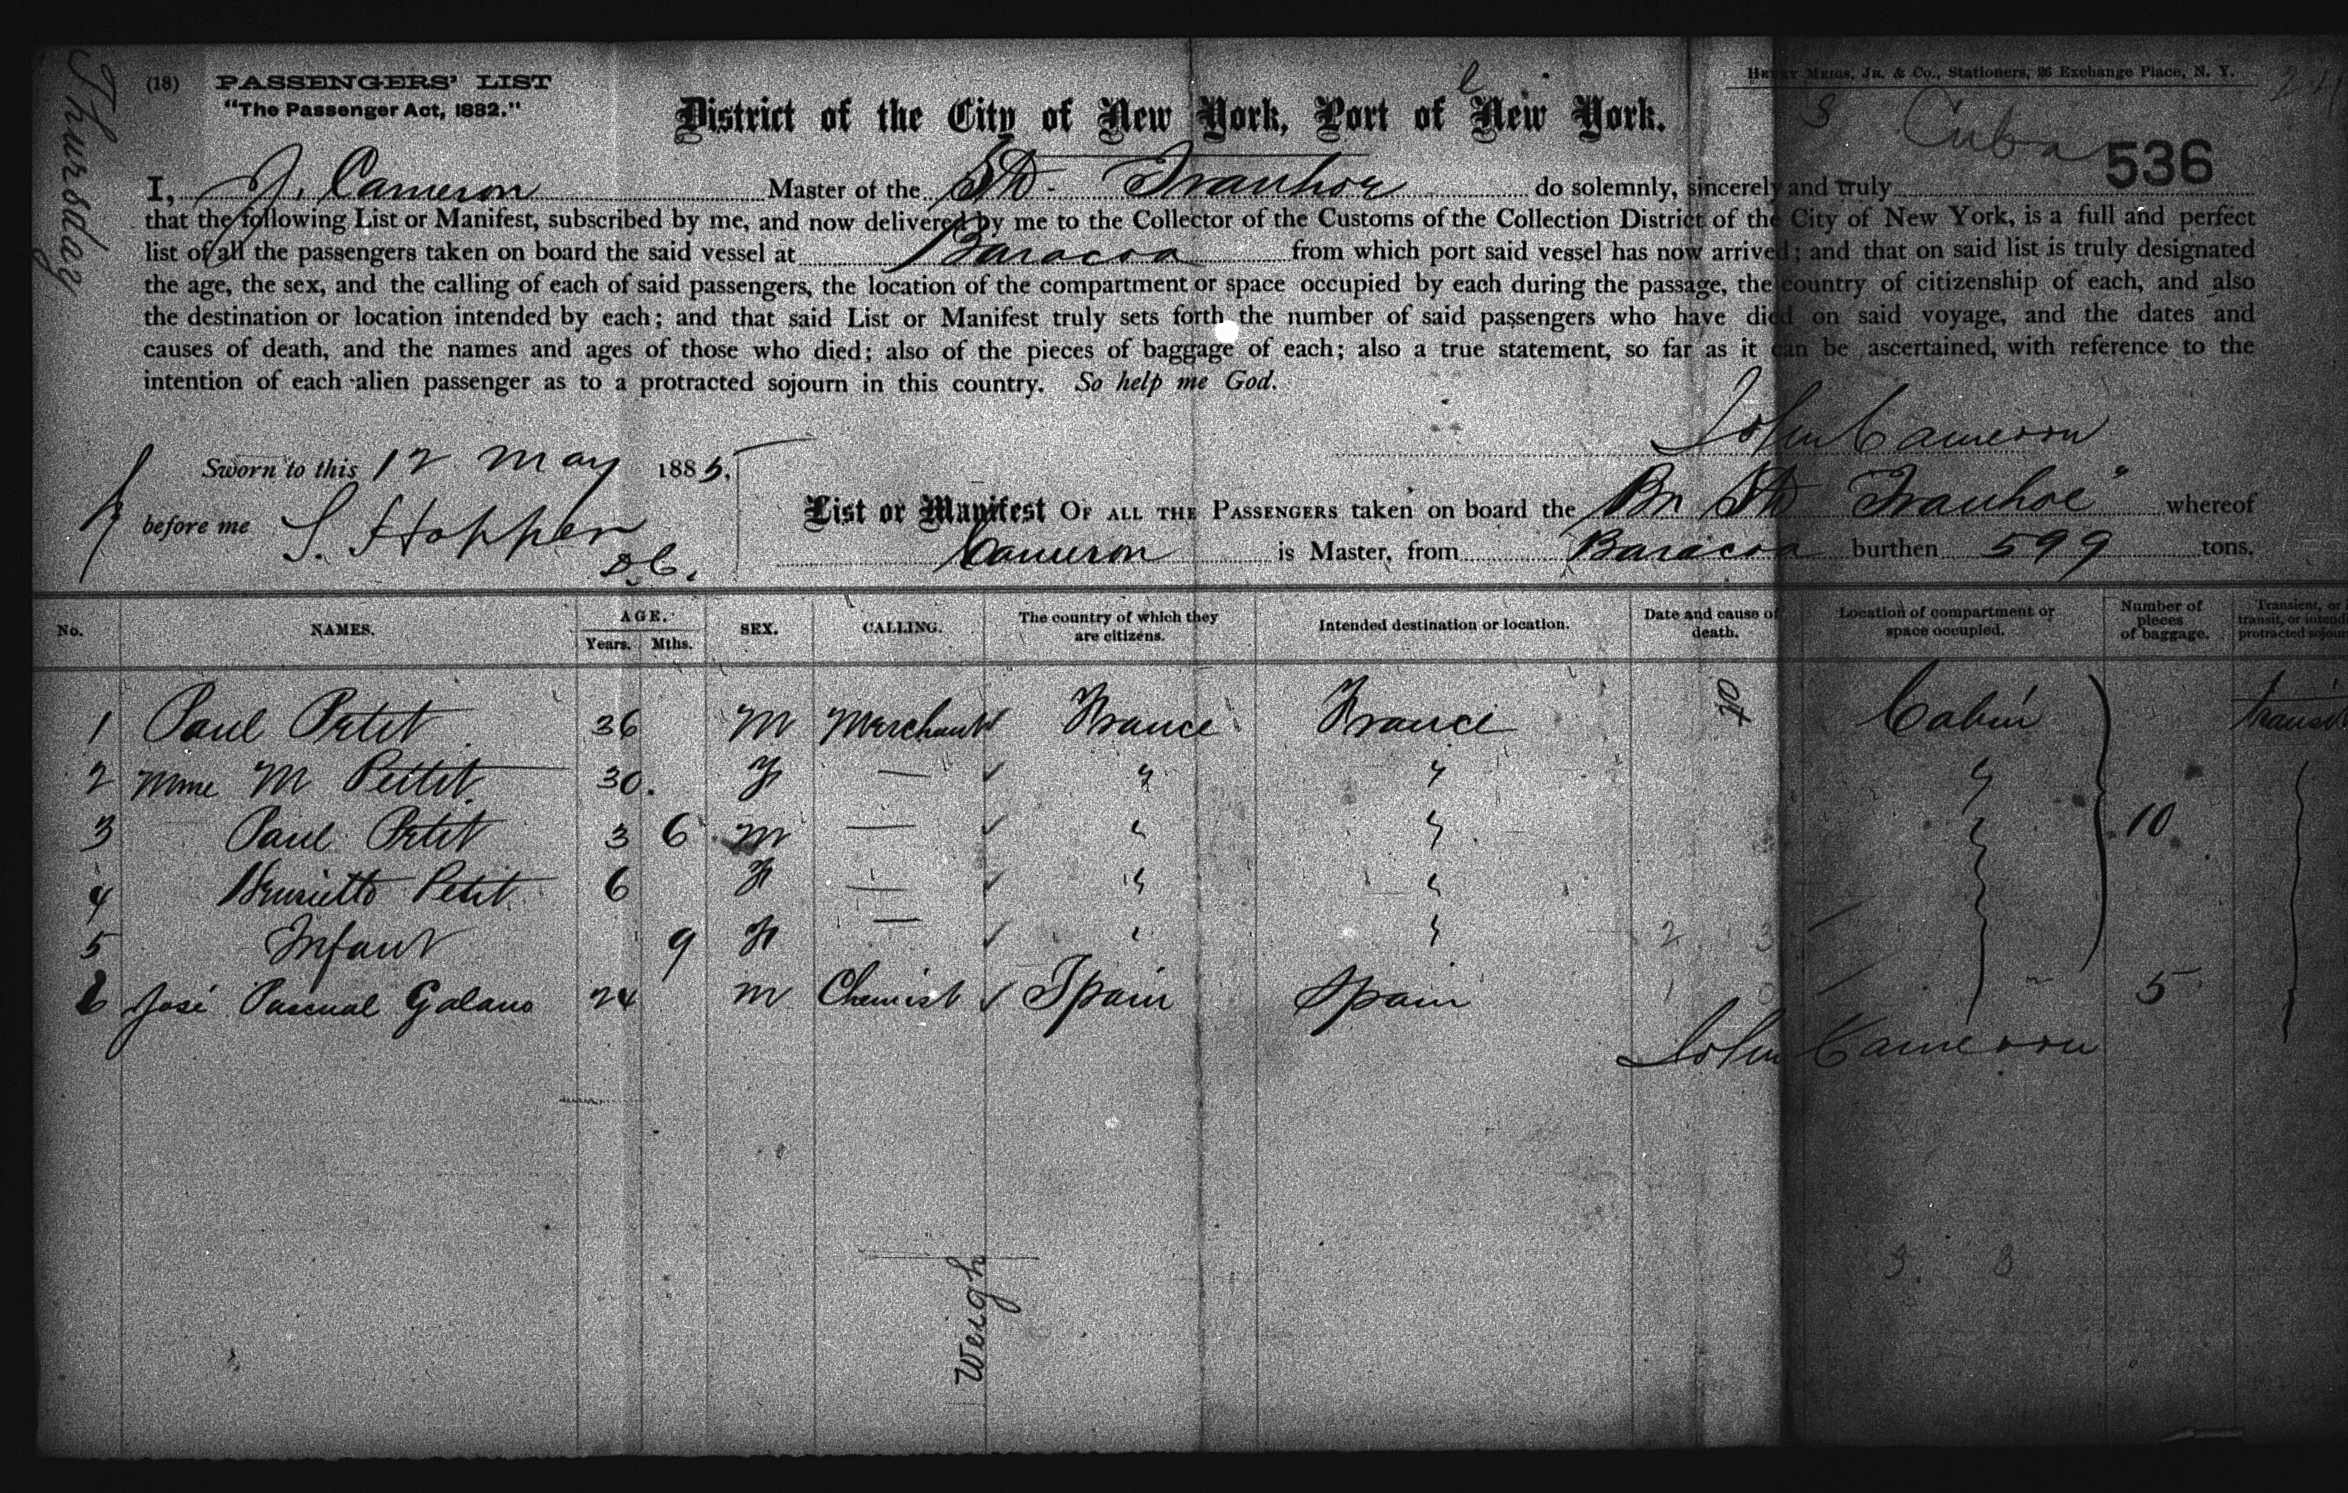 Thursday
(18) PASSENGERS' LIST
"The Passenger Act, 1882."
HENRY MEIGS, JR. & CO., Stationers, 26 Exchange Place, N. Y.
District of the City of New York, Port of New York.
Cuba
536
I, J. Cameron Master of the Str Ivanhoe do solemnly, sincerely and truly
that the following List or Manifest, subscribed by me, and now delivered by me to the Collector of the Customs of the Collection District of the City of New York, is a full and perfect
list of all the passengers taken on board the said vessel at Baracoa from which port said vessel has now arrived; and that on said list is truly designated
the age, the sex, and the calling of each of said passengers, the location of the compartment or space occupied by each during the passage, the country of citizenship of each, and also
the destination or location intended by each; and that said List or Manifest truly sets forth the number of said passengers who have died on said voyage, and the dates and
causes of death, and the names and ages of those who died; also of the pieces of baggage of each; also a true statement, so far as it can be ascertained, with reference to the
intention of each alien passenger as to a protracted sojourn in this country. So help me God.
John Cameron
Sworn to this 12 May 1885.
before me S. Hopper
D.C.
List or Manifest OF ALL THE PASSENGERS taken on board the Br Str Ivanhoe" whereof
Cameron is Master, from Baracoa burthen 599 tons.
No. NAMES. AGE. Years. Mths. SEX. CALLING. The country of which they are citizens. Intended destination or location. Date and cause of death. Location of compartment or space occupied. Number of pieces of baggage. Transient, or
1 Paul Petit 36 M Merchant France France Cabin
2 Mme M Pettit 30. F — " " "
3 Paul Petit 3 6 M — " " " 10
4 Henrietta Petit 6 F — " "
5 Infant 9 F — " "
6 José Pascual Galano 24 M Chemist Spain Spain 5
John Cameron
3. 3
Weigh